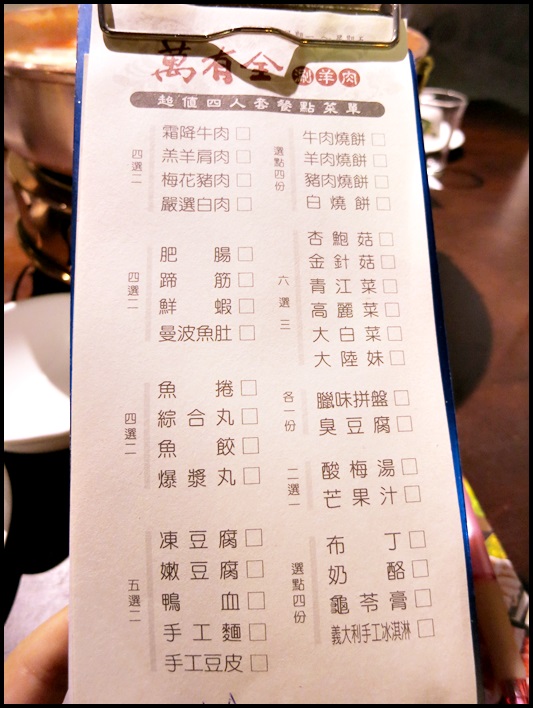 萬有全
涮羊肉
超值四人套餐點菜單
四選二
霜降牛肉□
羔羊肩肉□
梅花豬肉□
嚴選白肉□
四選二
肥腸□
蹄筋□
鮮蝦□
曼波魚肚□
四選二
魚捲□
綜合丸□
魚餃□
爆漿丸□
五選二
凍豆腐□
嫩豆腐□
鴨血□
手工麵□
手工豆皮□
選點四份
牛肉燒餅□
羊肉燒餅□
豬肉燒餅□
白燒餅□
六選三
杏鮑菇□
金針菇□
青江菜□
高麗菜□
大白菜□
大陸妹□
各一份
臘味拼盤□
臭豆腐□
二選一
酸梅湯□
芒果汁□
選點四份
布丁□
奶酪□
龜苓膏□
義大利手工冰淇淋□